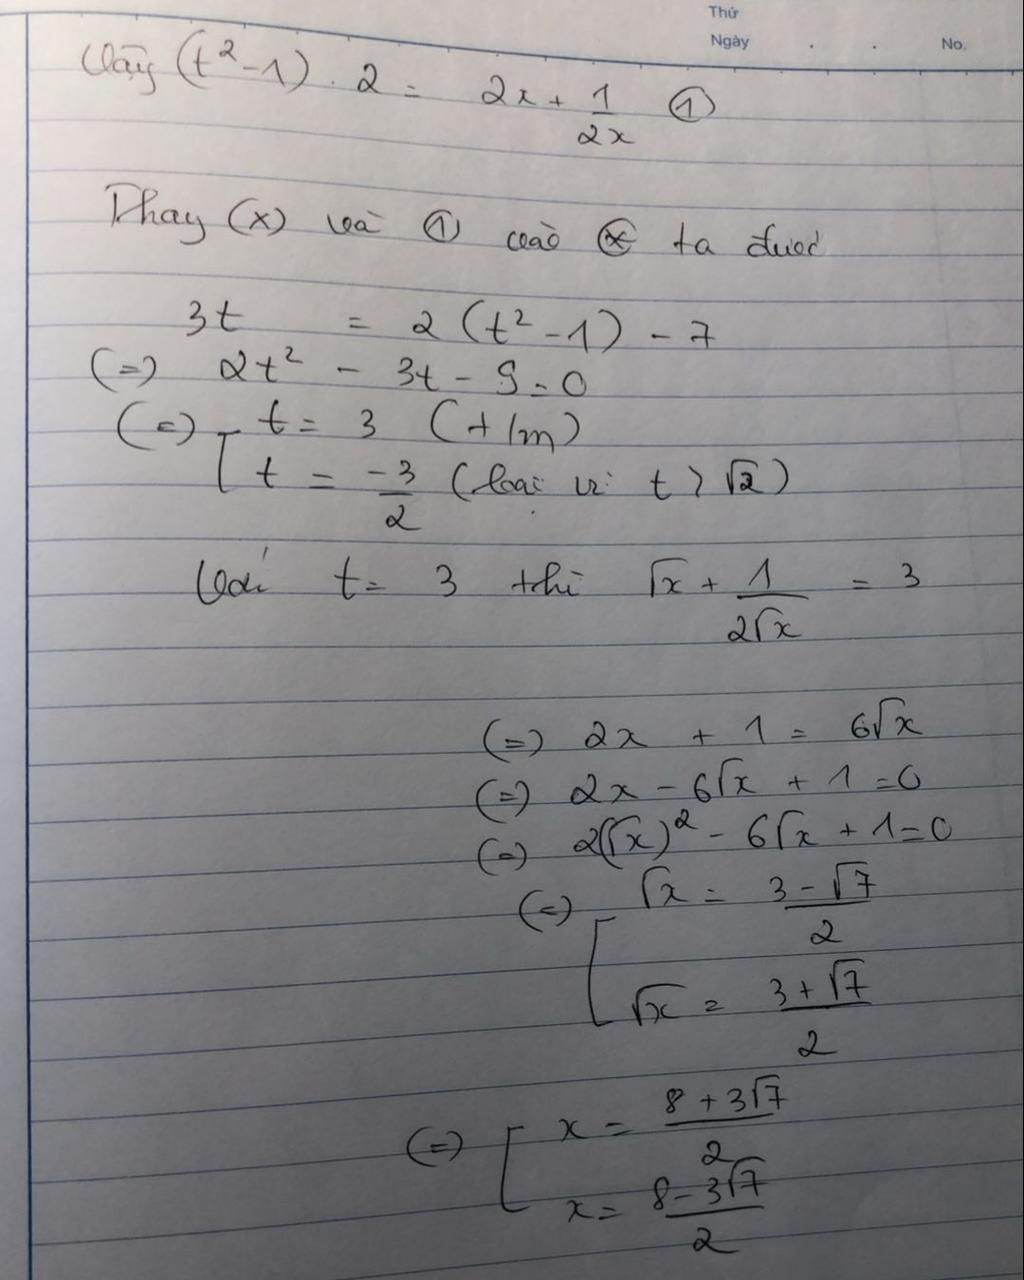 Thứ
Ngày . . No.
Vậy (t²-1).2 = 2x + 1/2x ①
Thay (x) và ① vào ⊛ ta được
3t = 2(t²-1) - 7
(=) 2t² - 3t - 9 = 0
(=) [ t = 3 (t/m)
t = -3/2 (loại vì t > √2)
Với t = 3 thì √x + 1/2√x = 3
(=) 2x + 1 = 6√x
(=) 2x - 6√x + 1 = 0
(=) 2(√x)² - 6√x + 1 = 0
(=) [ √x = 3-√7/2
√x = 3+√7/2
(=) [ x = 8+3√7/2
x = 8-3√7/2